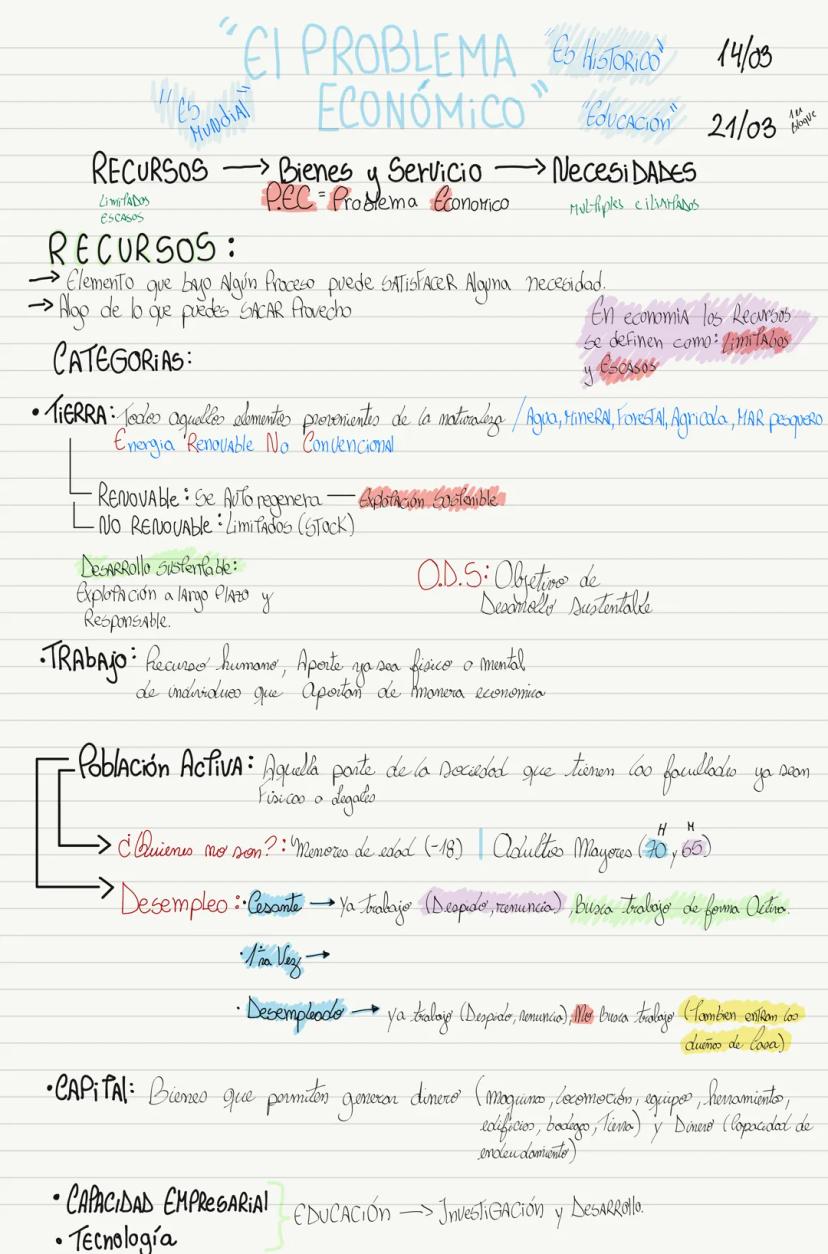 "El PROBLEMA ECONÓMICO"
"ES HISTORICO"
14/03
"ES MUNDIAL"
"EDUCACIÓN"
21/03 1er Bloque
RECURSOS → Bienes y Servicio → NECESIDADES
Limitados escasos
P.EC = Problema Economico
Multiples e ilimitados
RECURSOS:
→ Elemento que bajo Algún Proceso puede SATISFACER Alguna necesidad.
→ Algo de lo que puedes SACAR Provecho
En economia los Recursos
se definen como: Limitados
y Escasos
CATEGORIAS:
• TIERRA: Todos aquellos elementos provenientes de la naturaleza / Agua, MINERAL, Forestal, Agricola, MAR pesquero
Energia Renovable No Convencional
RENOVABLE: Se Auto regenera — Explotación Sostenible
NO RENOVABLE: Limitados (STOCK)
Desarrollo Sustentable:
Explotación a largo Plazo y
Responsable.
O.D.S: Objetivo de
Desarrollo Sustentable
• TRABAJO: Recurso humano, Aporte ya sea fisico o mental
de individuos que Aportan de manera economica
Población Activa: Aquella parte de la sociedad que tienen las facultades ya sean
Fisicas o Legales
¿Quienes no son?: Menores de edad (-18) | Adultos Mayores (70, 65)
H M
Desempleo: • Cesante → Ya trabajo (Despido, renuncia), Busca trabajo de forma Activa.
• 1ra Vez →
• Desempleado → ya trabajo (Despido, renuncia), No busca trabajo (Tambien entran las
dueñas de Casa)
• CAPITAL: Bienes que permiten generar dinero (maquina, locomoción, equipos, herramienta,
edificio, bodega, Tierra) y Dinero (Capacidad de
endeudamiento)
• CAPACIDAD EMPRESARIAL
• Tecnología
EDUCACIÓN → INVESTIGACIÓN y DESARROLLO.